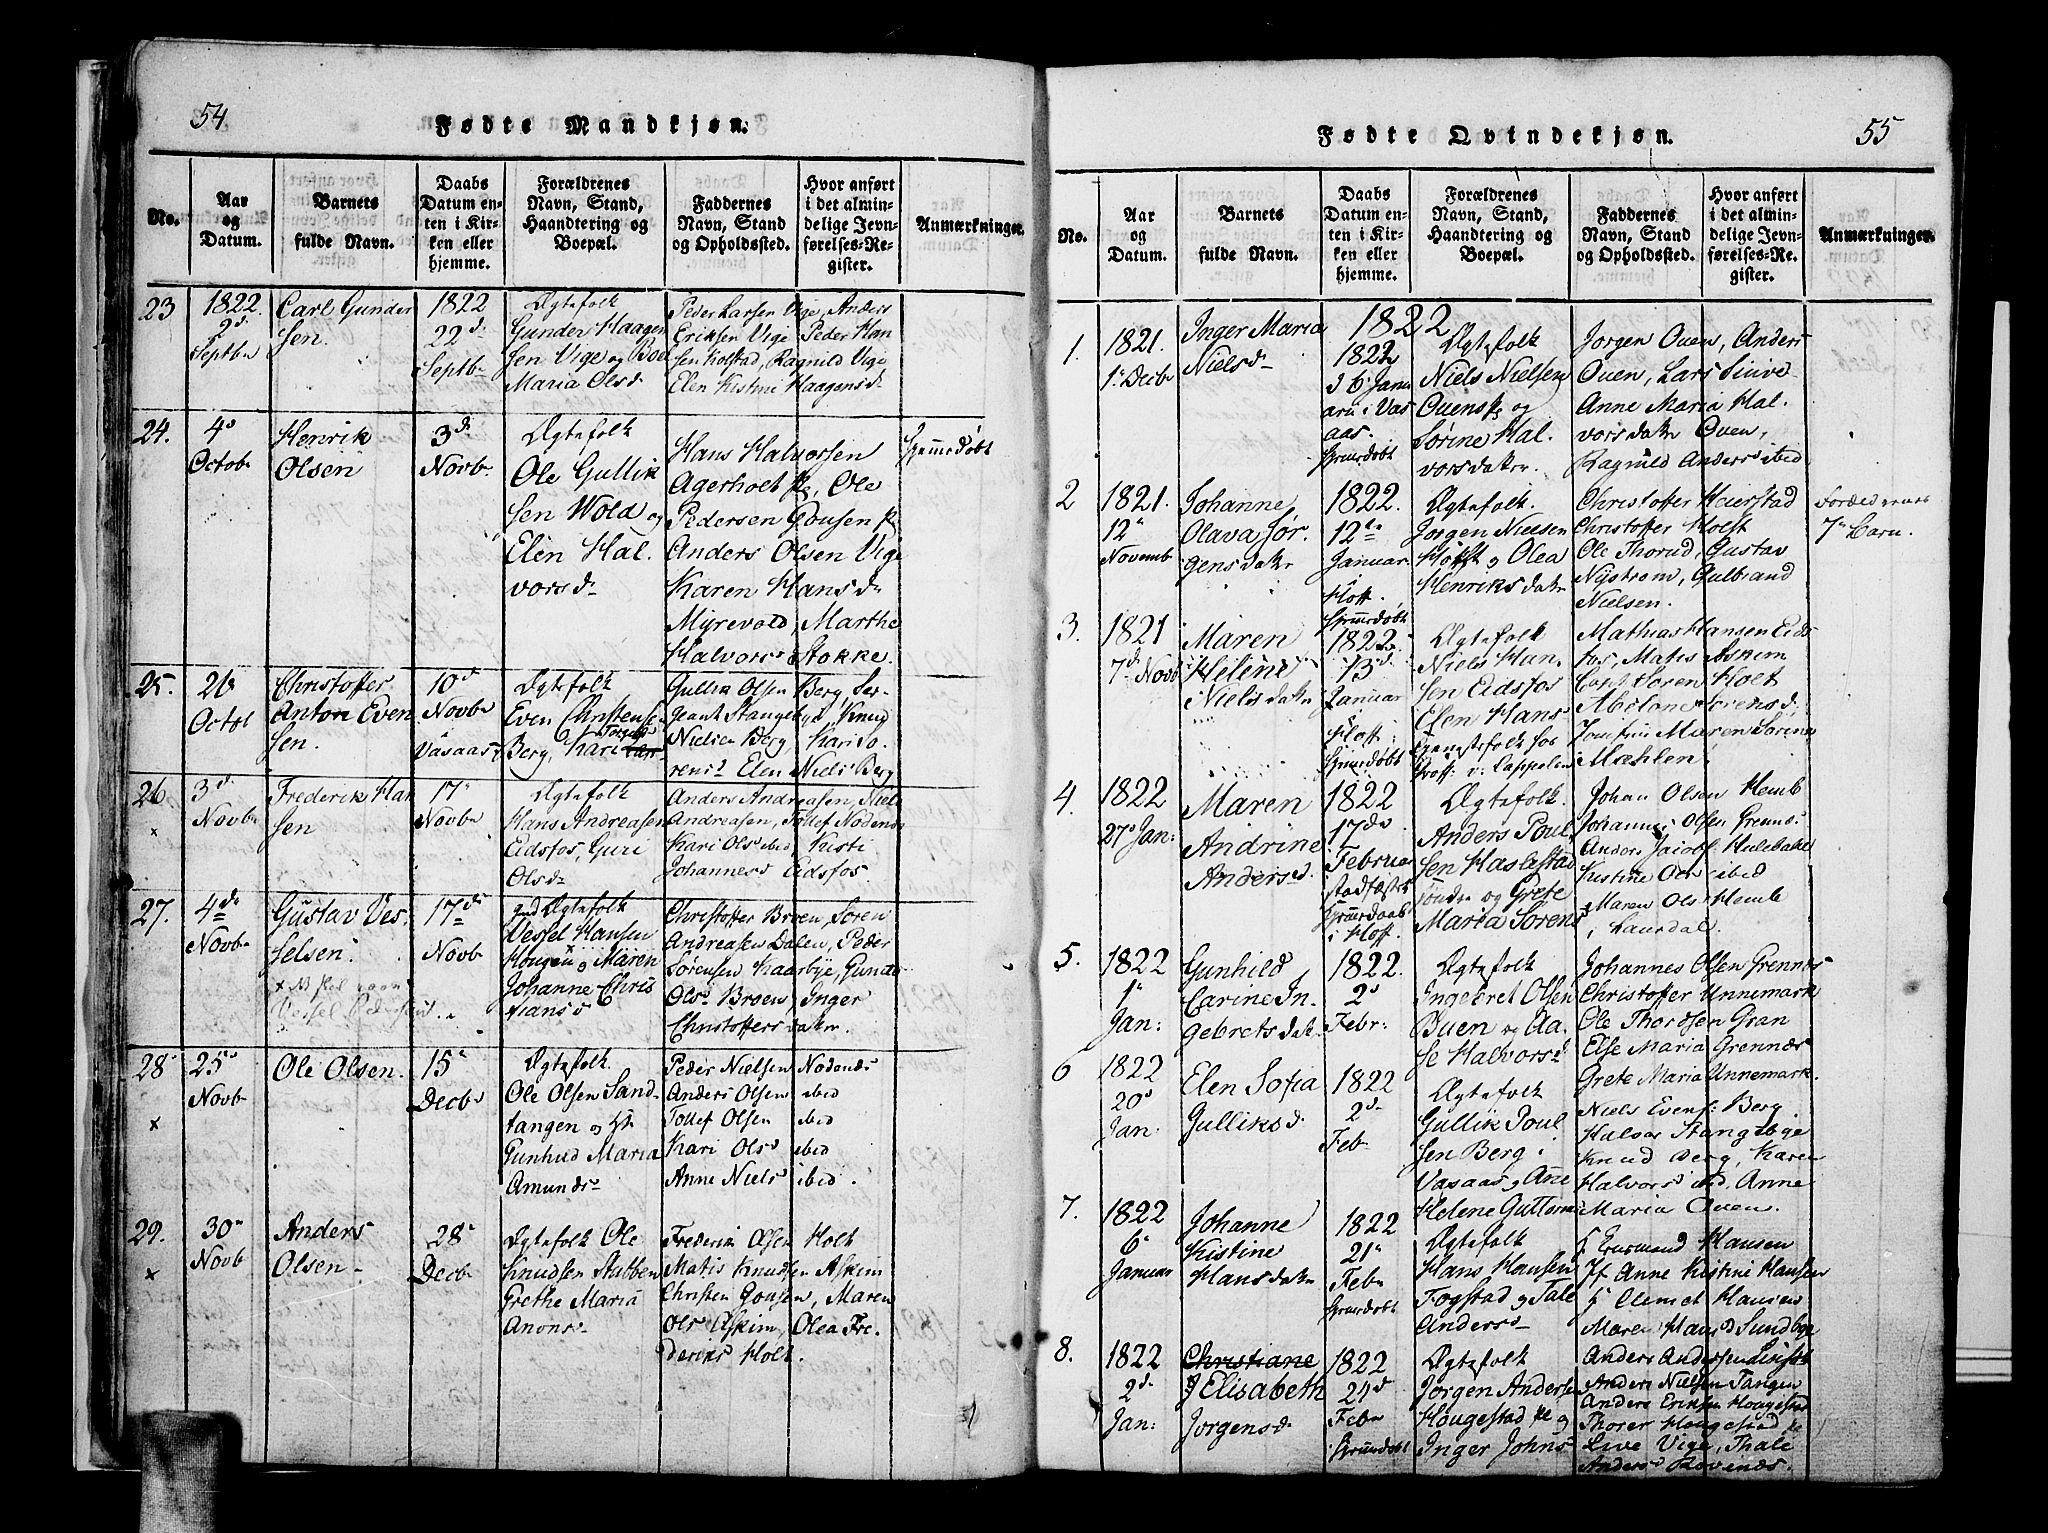 54
Fødte Mandkjøn.
No.
Aar
og
Datum.
Barnets
fulde Navn.
Daabs
Datum en-
ten i Kir-
ken eller
hjemme.
Forældrenes
Navn, Stand,
Haandtering og
Boepæl.
Faddernes
Navn, Stand
og Opholdssted.
Hvor anført
i det almin-
delige Jevn-
førelses-Re-
gister.
Anmærkninger.
23
1822.
2d
Septbr
Carl Gunder
sen.
1822
22d
Septbr
Ægtefolk
Gunder Haagen
sen Vige og Boel
Maria Olsd
Peder Larsen Vige, Anders
Eriksen Vige Peder Han
sen Kolstad, Ragnild Vige
Elen Kistine Haagensd
24.
4d
Octob
Henrik
Olsen
3d
Novbr
Ægtefolk
Ole Gullik
sen Wold og
Elen Hal.
vorsd
Hans Halvorsen
Agerholt, Ole
Pedersen
Anders Olsen Vige
Karen Hansd
Myrevold, Marthe
Halvorsd Stokke.
Hjemedøbt
25.
26
Octob
Christoffer
Anton Even
sen.
10d
Novbr
Vasaas
Ægtefolk
Even Christensen
Berg, Kari
Gullik Olsen Berg, Ser-
geant Stangebye, Knud
Nielsen Berg, Kari So.
rensd Elen Niels Berg
26
x
3d
Novbr
Frederik Han
sen
17
Novbr
Ægtefolk
Hans Andreasen
Eidsfos, Guri
Olsd
Anders Andreasen, Niels
Andreasen, Tollef Nodenæs
Kari Olsd ibid Kisti
Johannesd Eidsfos.
27.
4d
Novbr
Gustav Ves
selsen.
17d
Novbr
Ægtefolk
Vessel Hansen
Hougen og Maren
Johanne Chris
tiansd
Christoffer Broen, Soren
Andreasen Dalen, Peder
Sørensen Kaarbye, Gunder
Olsd Broen, Inger
Christoffersdatter.
28
x
25d
Novbr
Ole Olsen.
15
Decbr
Ægtefolk.
Ole Olsen Sand-
tangen og
Gunhild Maria
Amundsd
Peder Nielsen Nodenæs
Anders Olsen ibid
Tollef Olsen ibid
Kari Olsd ibid
Anne Nielsd ibid.
29.
x
30
Novb
Anders
Olsen
28
Decbr
Ægtefolk Ole
Knudsen Stubben
Grethe Maria
Anonsd
Frederik Olsen Holt
Matis Knudsen Askim
Christen Gousen, Maren
Olsd Askim, Olea Fre.
deriks Holt.
55
Fødte Qvindekjøn.
No.
Aar
og
Datum.
Barnets
fulde Navn.
Daabs
Datum en-
ten i Kir-
ken eller
hjemme.
Forældrenes
Navn, Stand,
Haandtering og
Boepæl.
Faddernes
Navn, Stand
og Opholdssted.
Hvor anført
i det almin-
delige Jevn-
førelses-Re-
gister.
Anmærkninger.
1822
1.
1821.
1 Decbr
Inger Maria
Nielsd
1822
d 6 Janu
aru i Vas
aas.
Hjemedøbt
Ægtefolk
Niels Nielsen
Ouens og
Sørine Hal.
vorsdatter.
Jorgen Ouen, Anders
Ouen, Lars
Anne Maria Hal.
vorsdatter Oven,
Ragnild Andersd ibid
2
1821.
12
Novemb
Johanne
Olava Jør.
gensdatter
1822.
12te
Januar
Hoff.
Hjemedøbt
Ægtefolk.
Jorgen Nielsen
Hoff og Olea
Henriksdatter
Christoffer Heierstad
Christoffer Holst
Ole Thorud, Gustav
Nystrom, Gulbrand
Nielsen.
7 Barn.
3.
1821
7d Novb
Maren
Helene
Nielsdatter
1822.
13d
Januar
Hoff
Hjemedøbt
Ægtefolk
Niels Han
sen Eidsfos
Elen Hans
Mathias Hansen Eids
fos, Matis Askim
Soren Holt
Sorensd
Jomfrue Maren Sorens
Mæhlen
4.
1822
27 Jan:
Maren
Andrine
Andersd.
1822
17de
Februar
stadfæstet
Hjemedaab
i Hoff.
Ægtefolk.
Anders Poul
sen Haslestad
søndre og Grete
Maria Sorensd
Johan Olsen Hemb
Johannes Olsen Grennes
Anders Jacobs Hulebake
Kistine Oens ibid
Maren Ols Hemb
i Laurdal.
5.
1822
1
Jan:
Gunhild
Carine In.
gebretsdatr
1822.
2d
Febr:
Ægtefolk
Ingebret Olsen
Buen og Aa-
se Halvorsd
Johannes Olsen Grennæs
Christoffer Unnemark
Ole Thordsen Gran
Else Maria Grennæs
Grete Maria Unnemark.
6
1822
20d
Jan.
Elen Sofia
Gulliksd.
1822
2d
Feb
Ægtefolk
Gullik Poul
sen Berg i
Vasaas og Ane
Helene Guttorm
Niels Evens: Berg.
Halvor Stangebye
Knud Berg, Karen
Halvorsd ibid, Anne
Maria Oven.
7.
1822
6
Januar
Johanne
Kistine
Hansdatr
1822
21
Febr
Hjemedøbt
Ægtefolk
Hans Hansen
Fogstad og Tale
Andersd
Hansen
Jf Anne Kistine Hansen
Clemet Hansen
Maren Hansd Sundbye
8.
1822
2d
Jan:
Christiane
Elisabeth
Jorgensd
1822
24d
Febr
Hjemedøbt
Ægtefolk
Jorgen Anders
Hougestad og
Inger Johnsd
Anders Andersen
Anders Nielsen Tangen
Anders Eriksen Hougestad
Thorer Hougestad
Live Vige, Thale
Andersd Rovenæs.